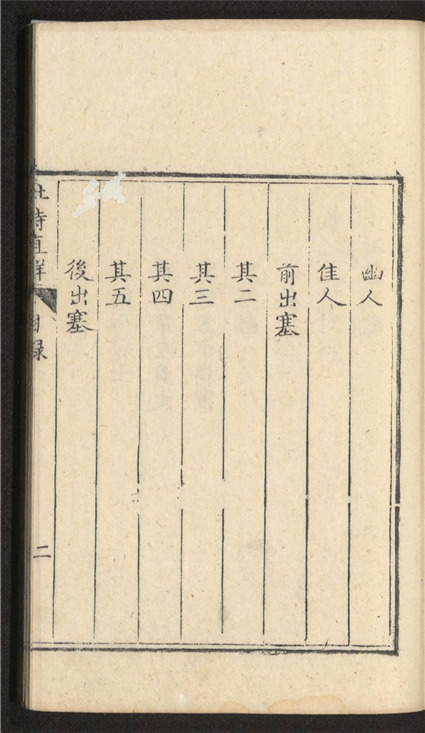 幽人
佳人
前出塞
其二
其三
其四
其五
後出塞
杜詩直解
目録
二